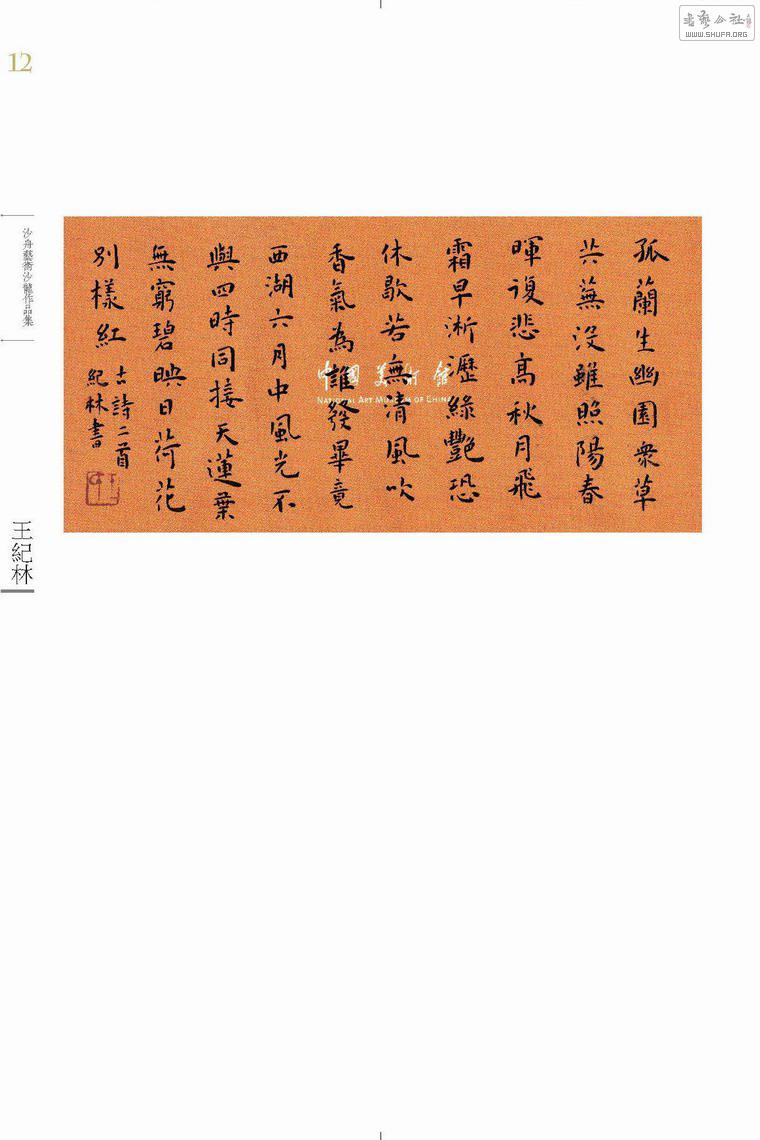 书艺公社
WWW.SHUFA.ORG
12
沙舟藝術沙龍作品集
王紀林
孤蘭生幽園衆草
共蕪没雖照陽春
暉復悲高秋月飛
霜早淅瀝綠艷恐
休歇若無清風吹
香氣為誰發畢竟
西湖六月中風光不
與四時同接天蓮葉
無窮碧映日荷花
別樣紅
古詩二首
紀林書
中國美術館
NATIONAL ART MUSEUM OF CHINA